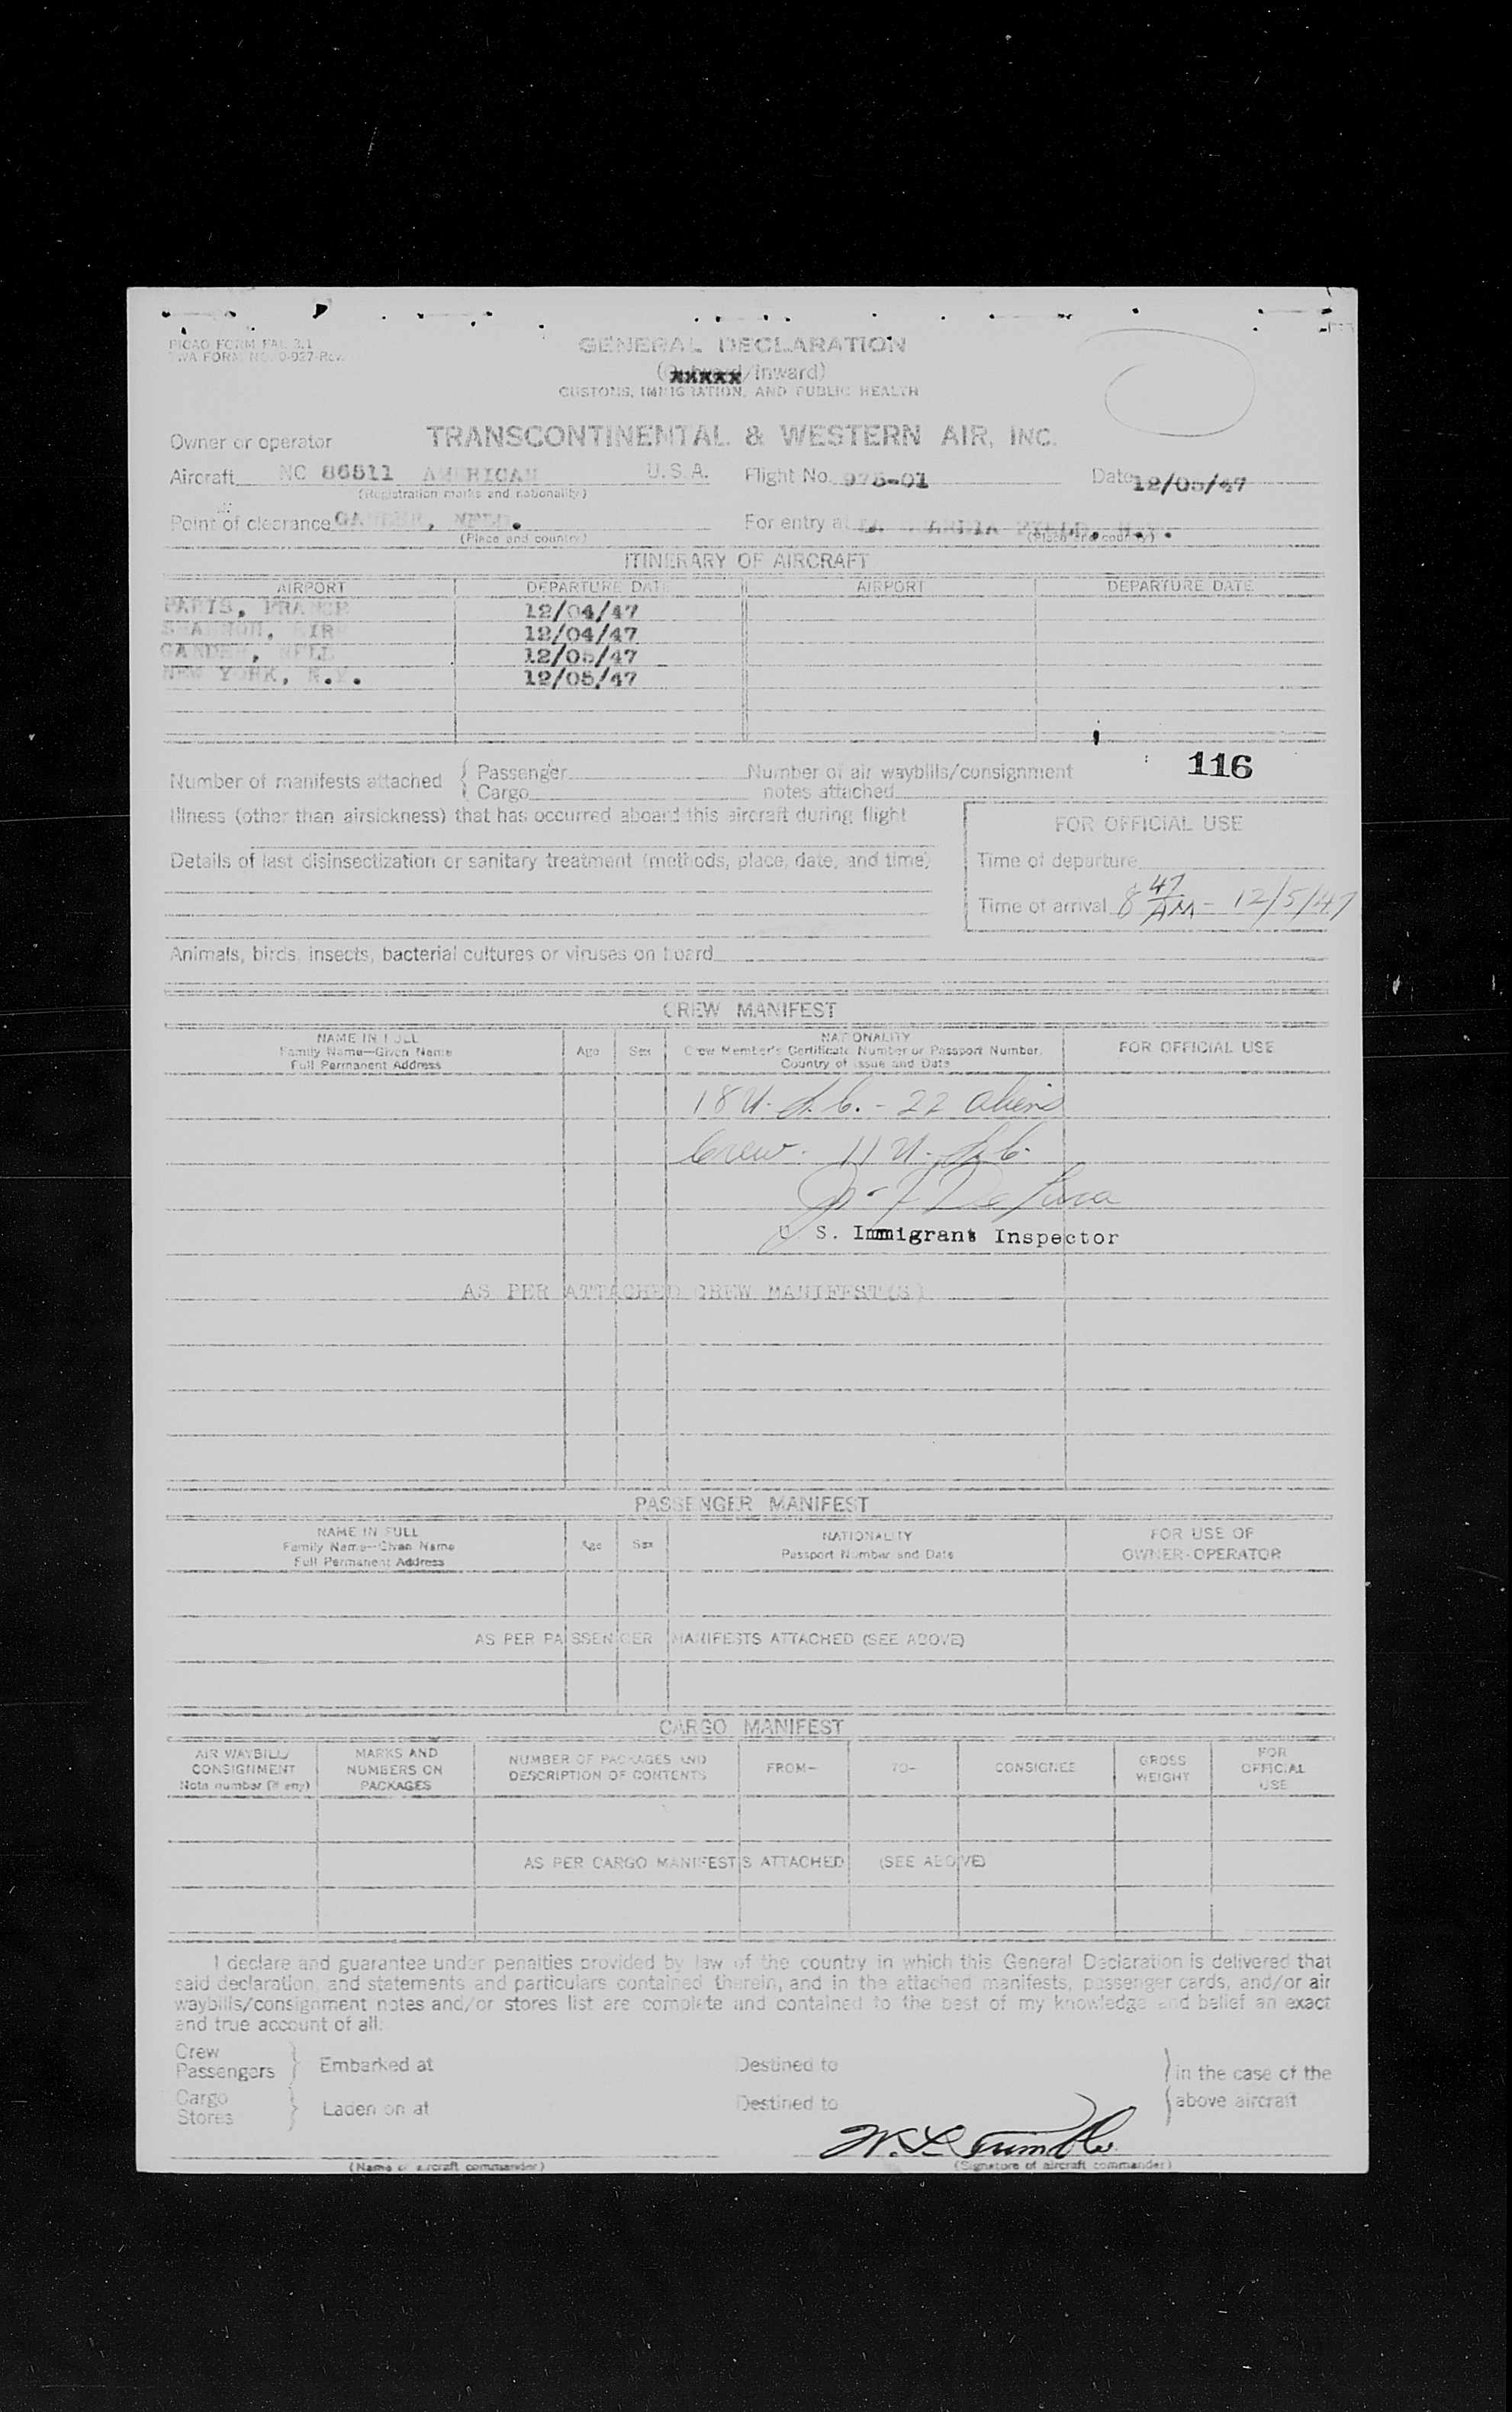 PICAO FORM FAL 3.1
TWA FORM NO. 0-927-Rev.
GENERAL DECLARATION
(Outward/Inward)
CUSTOMS, IMMIGRATION, AND PUBLIC HEALTH
Owner or operator TRANSCONTINENTAL & WESTERN AIR, INC.
Aircraft NC 86511 AMERICAN U.S.A. Flight No. 975-01 Date 12/05/47
(Registration marks and nationality)
Point of clearance GANDER, NFLD. For entry at LA GUARDIA FIELD, N.Y.
(Place and country) (Place and country)
ITINERARY OF AIRCRAFT
AIRPORT DEPARTURE DATE AIRPORT DEPARTURE DATE
PARIS, FRANCE 12/04/47
SHANNON, EIRE 12/04/47
GANDER, NFLD 12/05/47
NEW YORK, N.Y. 12/05/47
116
Number of manifests attached { Passenger Number of air waybills/consignment
Cargo notes attached
Illness (other than airsickness) that has occurred aboard this aircraft during flight
FOR OFFICIAL USE
Details of last disinsectization or sanitary treatment (methods, place, date, and time)
Time of departure
Time of arrival 8 47 AM - 12/5/47
Animals, birds, insects, bacterial cultures or viruses on board
CREW MANIFEST
NAME IN FULL
Family Name—Given Name
Full Permanent Address
Age
Sex
NATIONALITY
Crew Member's Certificate Number or Passport Number,
Country of Issue and Date
FOR OFFICIAL USE
18 U.S.C. - 22 aliens
Crew. 11 U.S.C.
De Luca
U S. Immigrant Inspector
AS PER ATTACHED CREW MANIFEST(S)
PASSENGER MANIFEST
NAME IN FULL
Family Name—Given Name
Full Permanent Address
Age
Sex
NATIONALITY
Passport Number and Date
FOR USE OF
OWNER-OPERATOR
AS PER PASSENGER MANIFESTS ATTACHED (SEE ABOVE)
CARGO MANIFEST
AIR WAYBILL/
CONSIGNMENT
Note number (if any)
MARKS AND
NUMBERS ON
PACKAGES
NUMBER OF PACKAGES AND
DESCRIPTION OF CONTENTS
FROM—
TO—
CONSIGNEE
GROSS
WEIGHT
FOR
OFFICIAL
USE
AS PER CARGO MANIFESTS ATTACHED (SEE ABOVE)
I declare and guarantee under penalties provided by law of the country in which this General Declaration is delivered that
said declaration and statements and particulars contained therein, and in the attached manifests, passenger cards, and/or air
waybills/consignment notes and/or stores list are complete and contained to the best of my knowledge and belief an exact
and true account of all:
Crew
Passengers } Embarked at Destined to } in the case of the
Cargo
Stores } Laden on at Destined to { above aircraft
W. L. Trimble
(Name of aircraft commander) (Signature of aircraft commander)